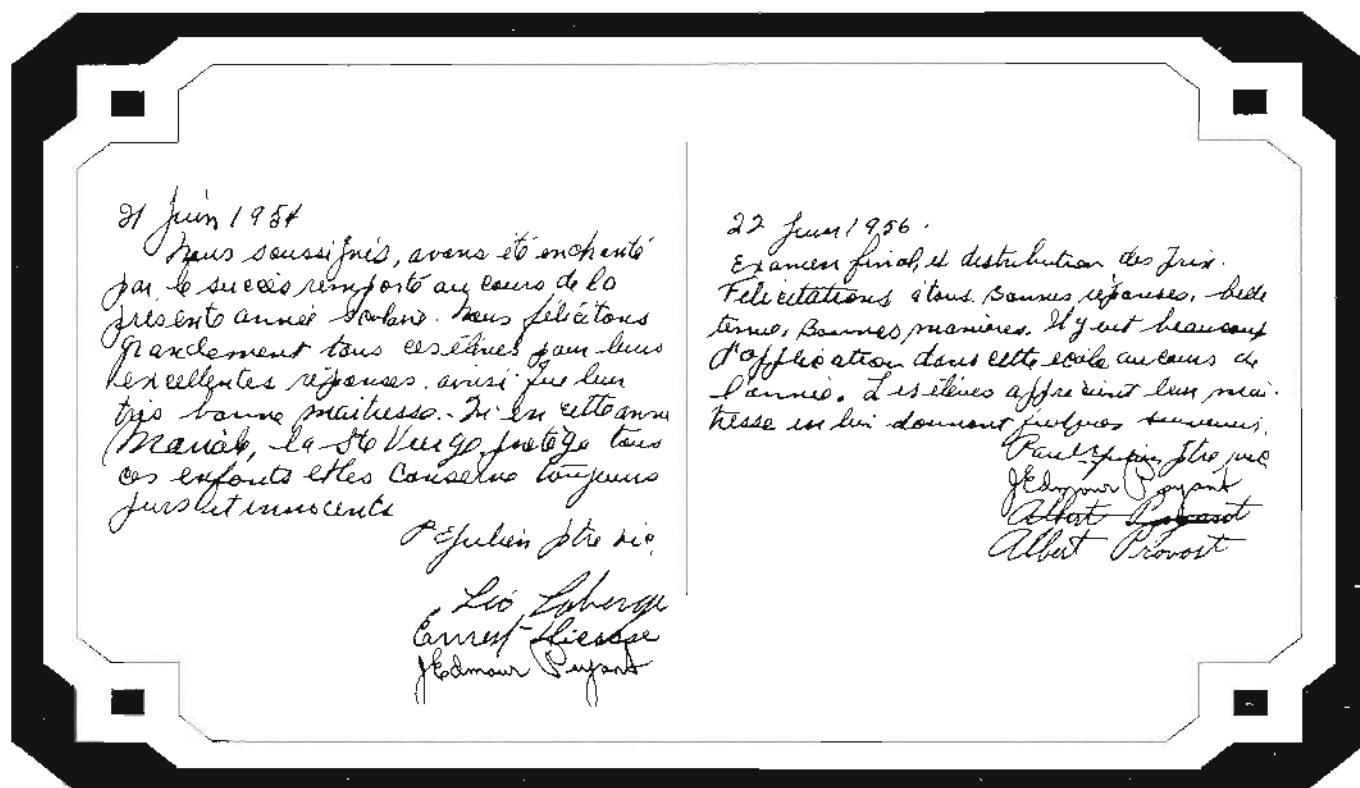 21 Juin 1954
Nous soussignés, avons été enchanté
par le succès remporté au cours de la
présente année scolaire. Nous félicitons
grandement tous ces élèves pour leurs
excellentes réponses ainsi que leur
très bonne maitresse. en cette année
Mariale, la Ste Vierge protège tous
ces enfants et les conserve toujours
purs et innocents
P E Julien ptre vic.
Léo Laberge
Ernest
J Edmour Payant
22 Juin 1956.
Examen final, et distribution des Prix.
Félicitations à tous. Bonnes réponses, belle
tenue, Bonnes manières. Il y eut beaucoup
d'application dans cette école au cours de
l'année. Les élèves apprécient leur mai-
tresse en lui donnant quelques souvenirs.
Paul E Julien, ptre vic
J Edmour Payant
Albert Payant
Albert Provost